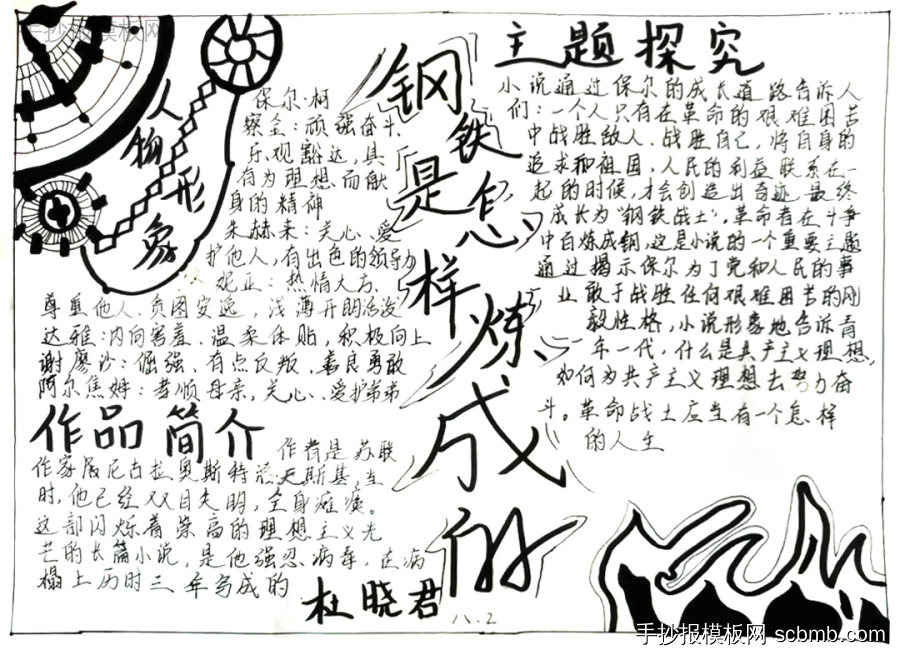 手抄报模板网
人物形象
保尔·柯
察金：顽强奋斗、
乐观豁达，具
有为理想而献
身的精神
朱赫来：关心、爱
护他人，有出色的领导力
妮亚：热情大方、
尊重他人、贪图安逸，浅薄开朗活泼
达雅：内向害羞、温柔体贴，积极向上
谢廖沙：倔强、有点反叛，善良勇敢
阿尔焦姆：孝顺母亲，关心、爱护弟弟
作品简介
作者是苏联
作家尼古拉奥斯特洛夫斯基，当
时，他已经双目失明，全身瘫痪。
这部闪烁着崇高的理想主义光
芒的长篇小说，是他强忍病毒，在病
榻上历时三年写成的
杜晓君
八.2
钢铁是怎样炼成的
主题探究
小说通过保尔的成长道路告诉人
们：一个人只有在革命的艰难困苦
中战胜敌人、战胜自己，将自身的
追求和祖国，人民的利益联系在一
起的时候，才会创造出奇迹，最终
成长为"钢铁战士"，革命者在斗争
中百炼成钢，这是小说的一个重要主题
通过揭示保尔为了党和人民的事
业敢于战胜任何艰难困苦的刚
毅性格，小说形象地告诉青
年一代，什么是共产主义理想，
如何为共产主义理想去努力奋
斗。革命战士应当有一个怎样
的人生
手抄报模板网 scbmb.com